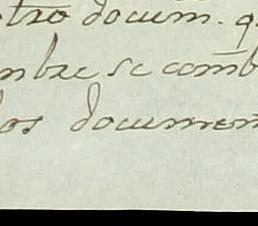 tro docum. q
nbre se comb
los documen